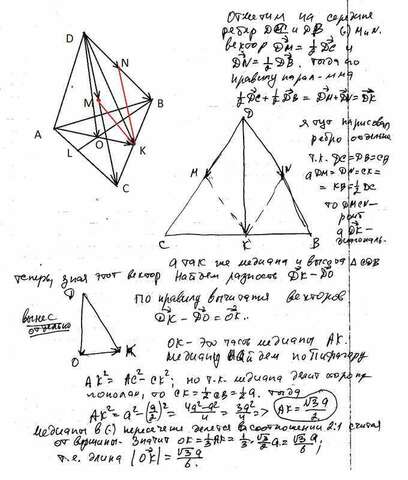 Отметим на середине
ребер DC и DB (·) M и N.
вектор DM = 1/2 DC и
DN = 1/2 DB. Тогда по
правилу парал-мма
1/2 DC + 1/2 DB = DM + DN = DK
D
N
M
B
A
O
K
L
C
я тут нарисовал
ребро отдельно
т.к. DC = DB = CB
а DM = DN = CK =
= KB = 1/2 DC
то DMKN –
ромб
а DK –
диагональ.
D
M
N
C
K
B
а так же медиана и высота △ CDB
теперь, зная этот вектор найдем разность DK – DO
D
вынес
отдельно
O
K
по правилу вычитания векторов
DK – DO = OK.
OK – это часть медианы AK.
медиану найдем по Пифагору
AK² = AC² – CK²; но т.к. медиана делит сторону
пополам, то CK = 1/2 CB = 1/2 a. тогда
AK² = a² – (a/2)² = (4a² – a²)/4 = 3a²/4 => AK = √3 a/2
медианы в (·) пересечения делятся в соотношении 2:1 считая
от вершины. Значит OK = 1/3 AK = 1/3 · √3/2 a = √3 a/6;
т.е. длина |OK| = √3 a/6.